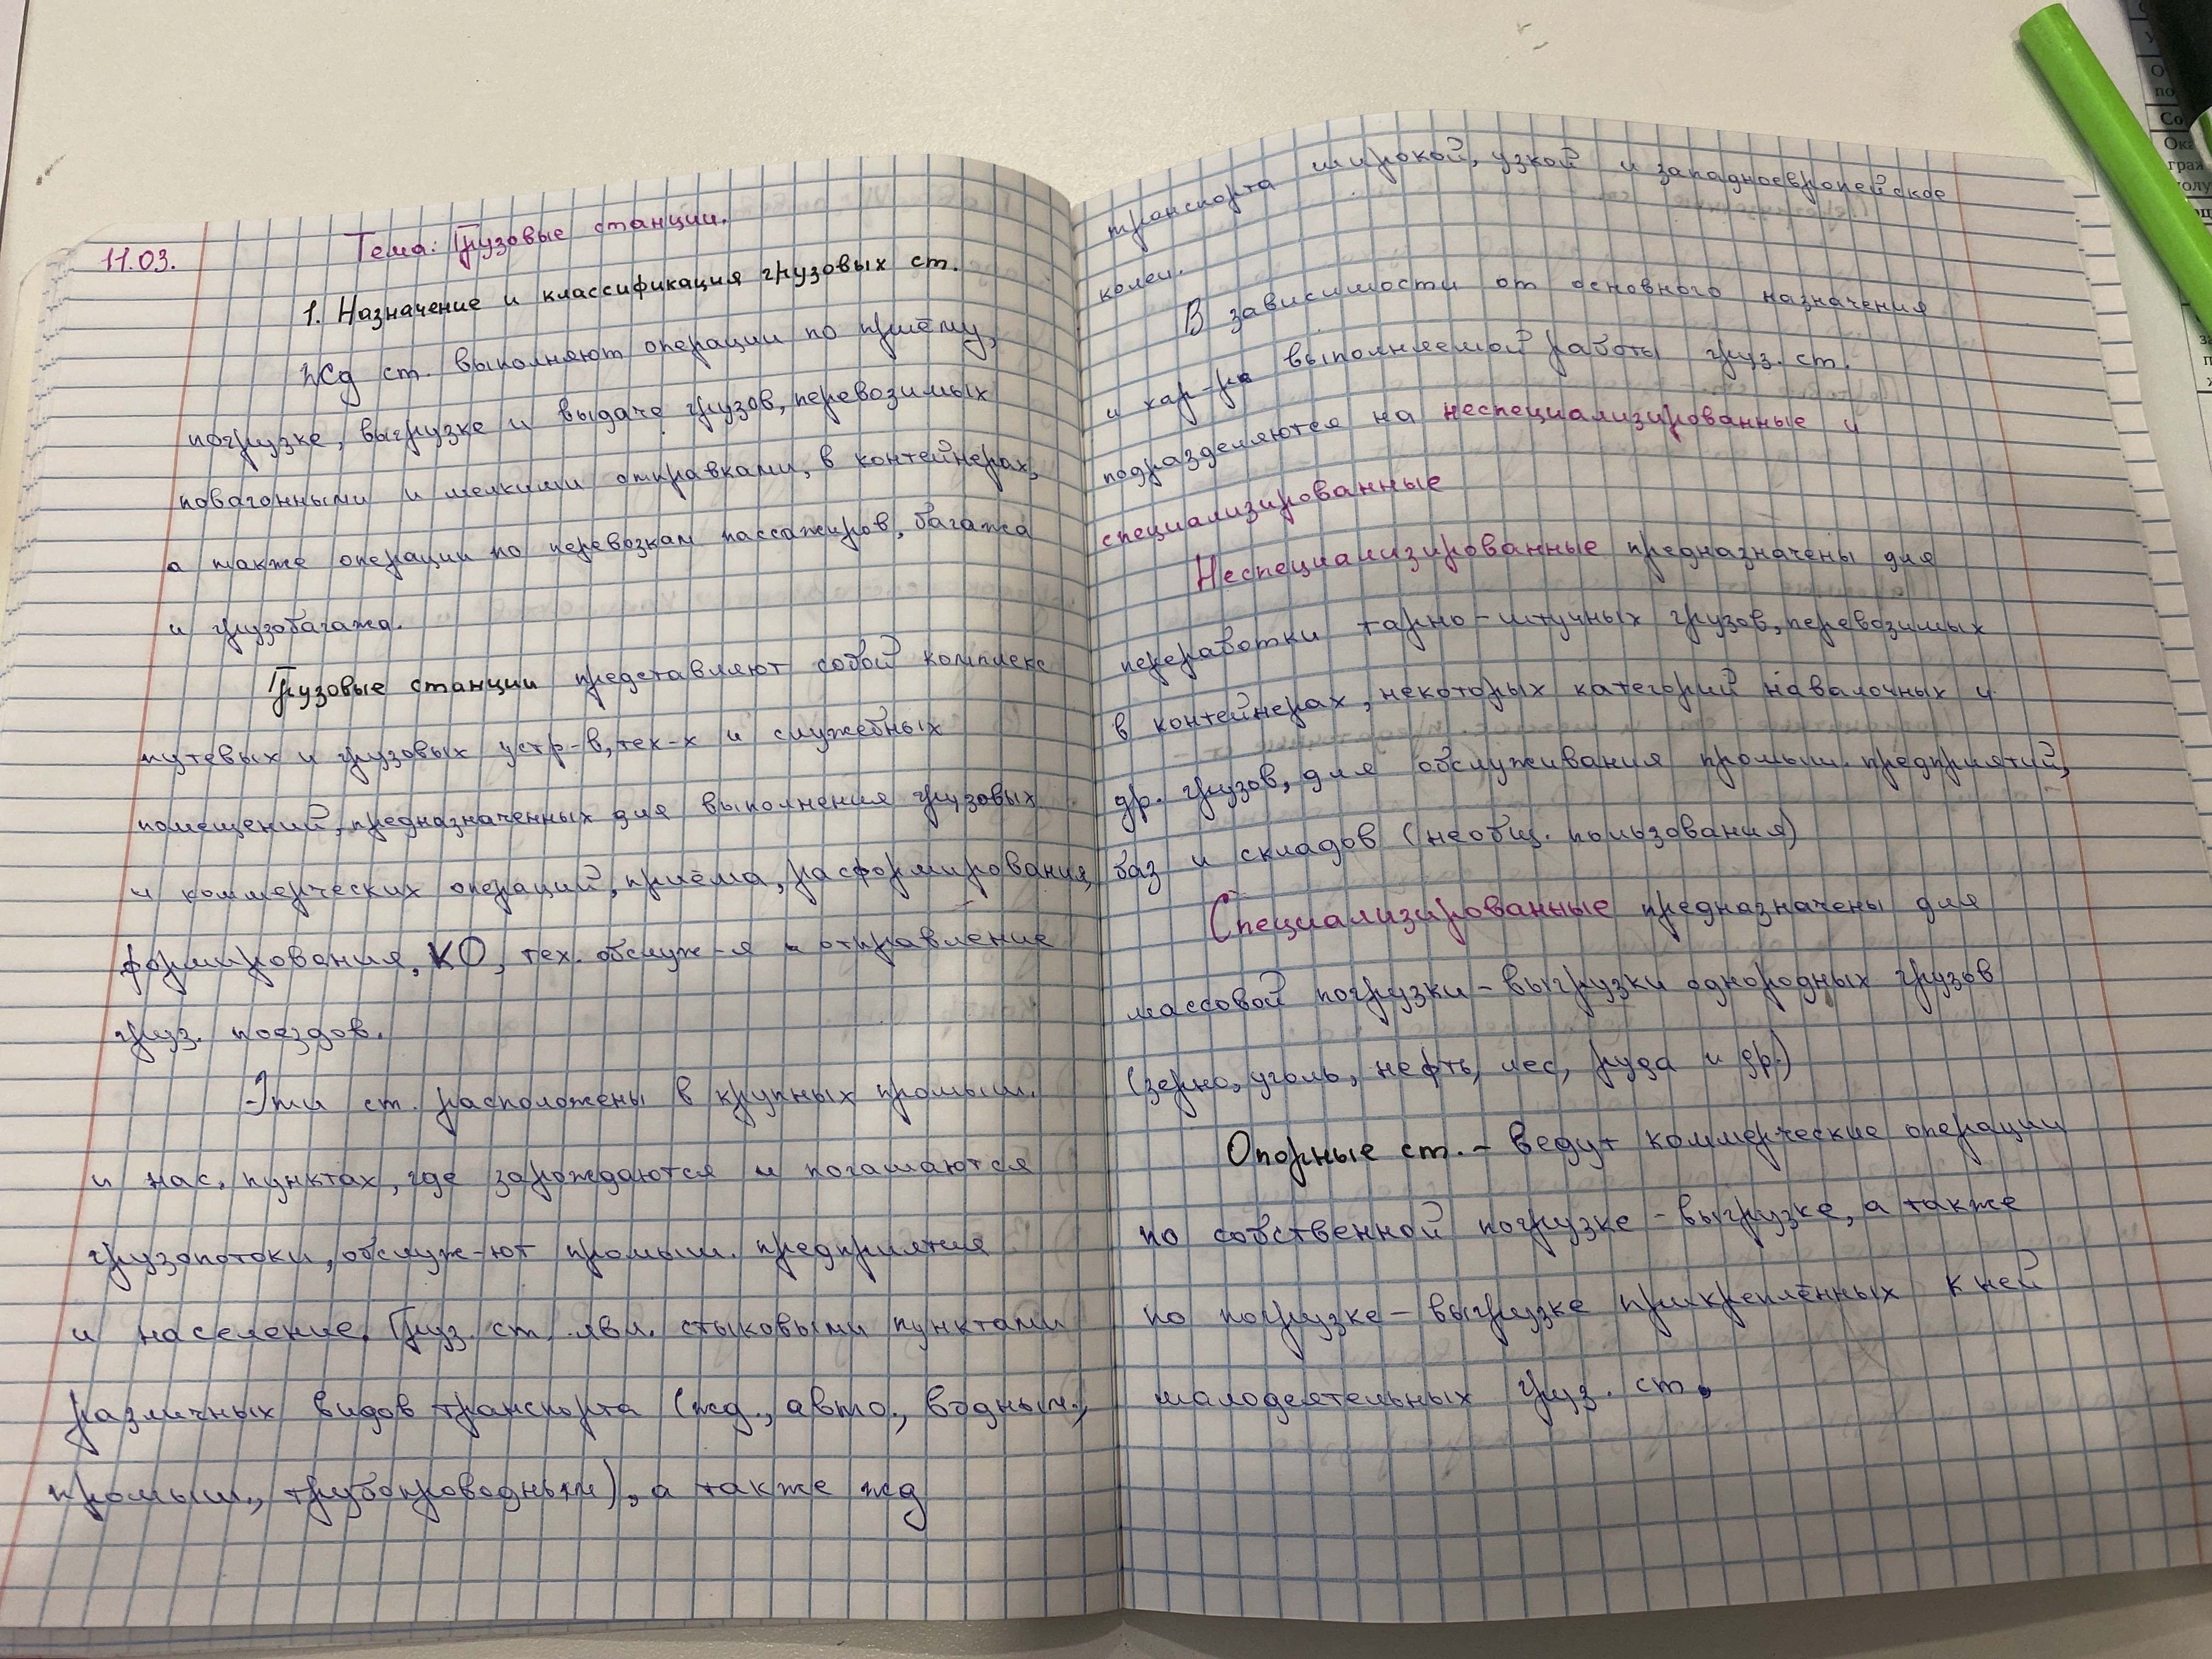 11.03.
Тема: Грузовые станции.
1. Назначение и классификация грузовых ст.
Жд ст. выполняют операции по приёму,
погрузке, выгрузке и выдаче грузов, перевозимых
повагонными и мелкими отправками, в контейнерах,
а также операции по перевозкам пассажиров, багажа
и грузобагажа.
Грузовые станции представляют собой комплекс
путевых и грузовых устр-в, тех-х и служебных
помещений, предназначенных для выполнения грузовых
и коммерческих операций, приёма, расформирования,
формирования, КО, тех. обслуж-я и отправление
груз. поездов.
Эти ст. расположены в крупных промыш.
и нас. пунктах, где зарождаются и погашаются
грузопотоки, обслуж-ют промыш. предприятия
и население. Груз. ст. явл. стыковыми пунктами
различных видов транспорта (жд., авто., водным.,
промыш., трубопроводным), а также жд
транспорта широкой, узкой и западноевропейское
колеи.
В зависимости от основного назначения
и хар-ра выполняемой работы груз. ст.
подразделяются на неспециализированные и
специализированные
Неспециализированные предназначены для
переработки тарно-штучных грузов, перевозимых
в контейнерах, некоторых категорий навалочных и
др. грузов, для обслуживания промыш. предприятий,
баз и складов (необщ. пользования)
Специализированные предназначены для
массовой погрузки-выгрузки однородных грузов
(зерно, уголь, нефть, лес, руда и др.)
Опорные ст. - ведут коммерческие операции
по собственной погрузке-выгрузке, а также
по погрузке-выгрузке прикреплённых к ней
малодеятельных груз. ст.